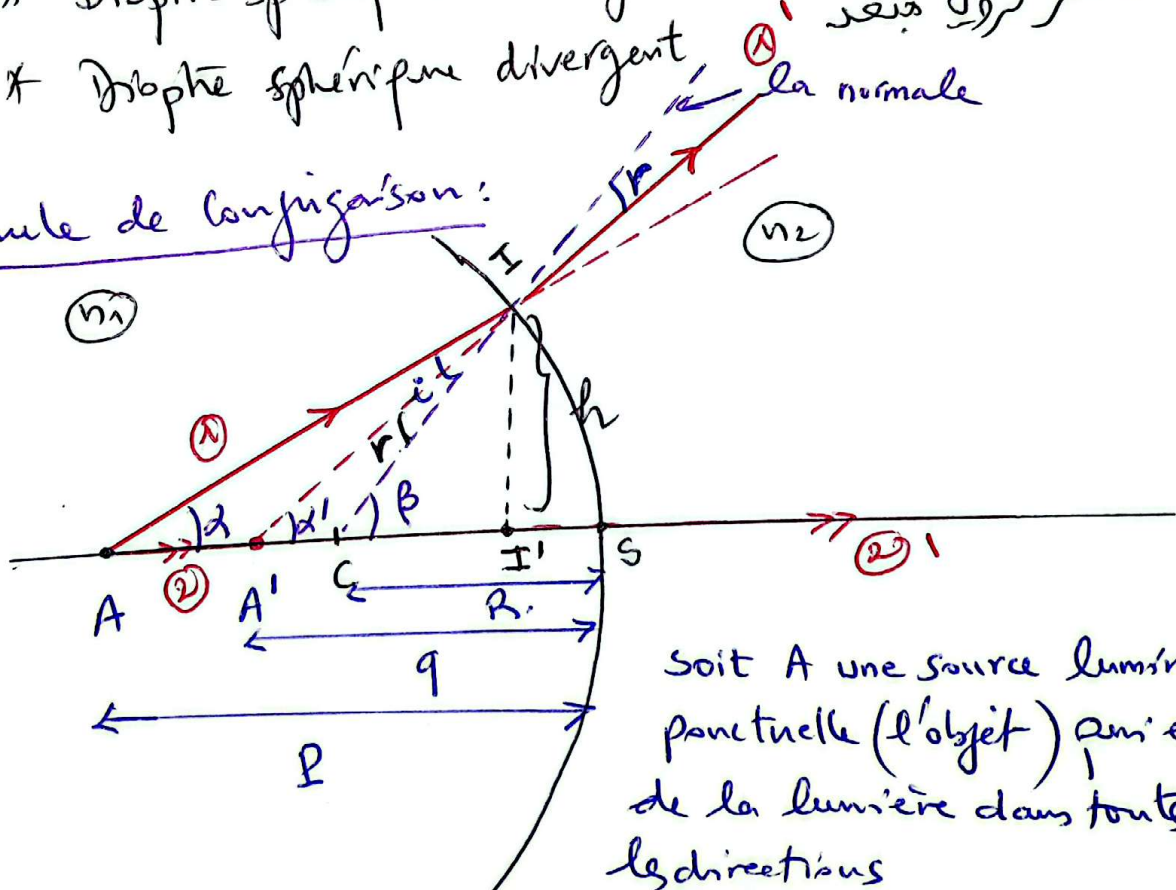 * Dioptre sphérique divergent
la normale
ule de Conjugaison:
n1
n2
1
1'
I
r
i
r
h
α
α'
β
2
2'
A
A'
C
I'
S
R.
q
P
soit A une source lumin
ponctuelle (l'objet) qui é
de la lumière dans toute
les directions